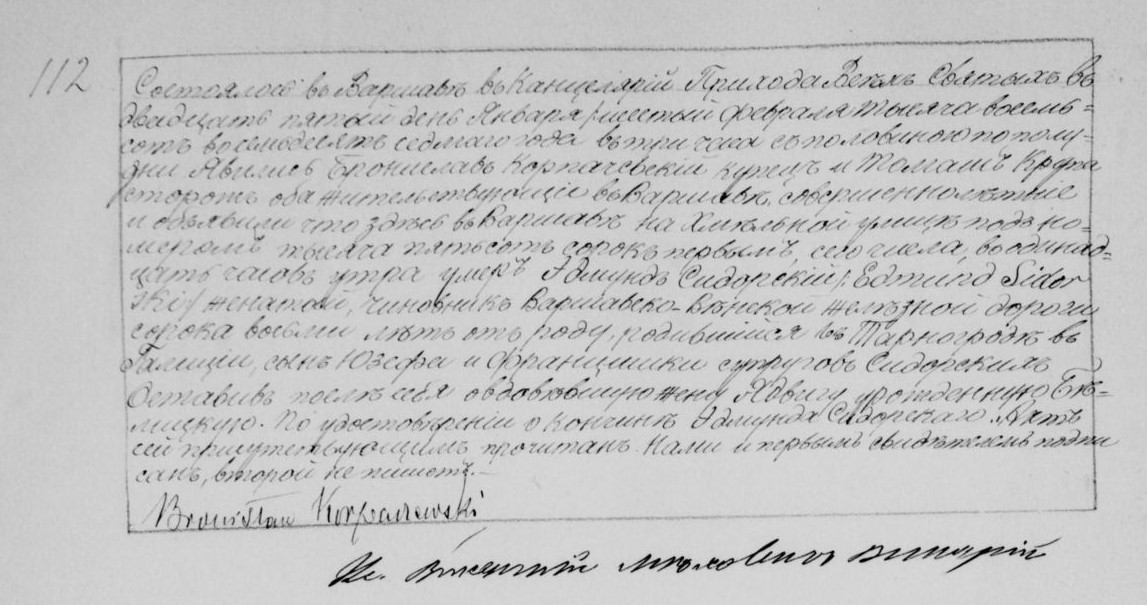 112
Состоялось въ Варшавѣ въ Канцеляріи Прихода Всѣхъ Святыхъ въ
двадцать пятый день Января /шестый Февраля тысяча восемь=
сотъ восемьдесятъ седмаго года въ три часа съ половиною по полу-
дни Явились Брониславъ Корпачевскій купецъ и Томашъ Крупа
сторожъ оба жительствующіе въ Варшавѣ, совершеннолѣтніе
и объявили что здѣсь въ Варшавѣ на Хмѣльной улицѣ подъ но-
меромъ тысяча пятьсотъ сорокъ первымъ, сего числа, въ одинад-
цать часовъ утра умеръ Эдмундъ Сидорскій /: Edmund Sidor
ski :/ женатый, чиновникъ Варшавско-Вѣнской желѣзной дороги
сорока восьми лѣтъ отъ роду, родившійся въ Тарногродѣ въ
Галиціи, сынъ Юзефа и Францишки супруговъ Сидорскихъ
Оставивъ послѣ себя овдовѣвшую жену Ядвигу урожденную
По удостовѣреніи о кончинѣ Эдмунда Сидорскаго Актъ
сей присутствующимъ прочитанъ Нами и первымъ свидѣтелемъ подпи
санъ, второй не пишетъ.—
Bronisław Korpaczewski
Кс. викарій